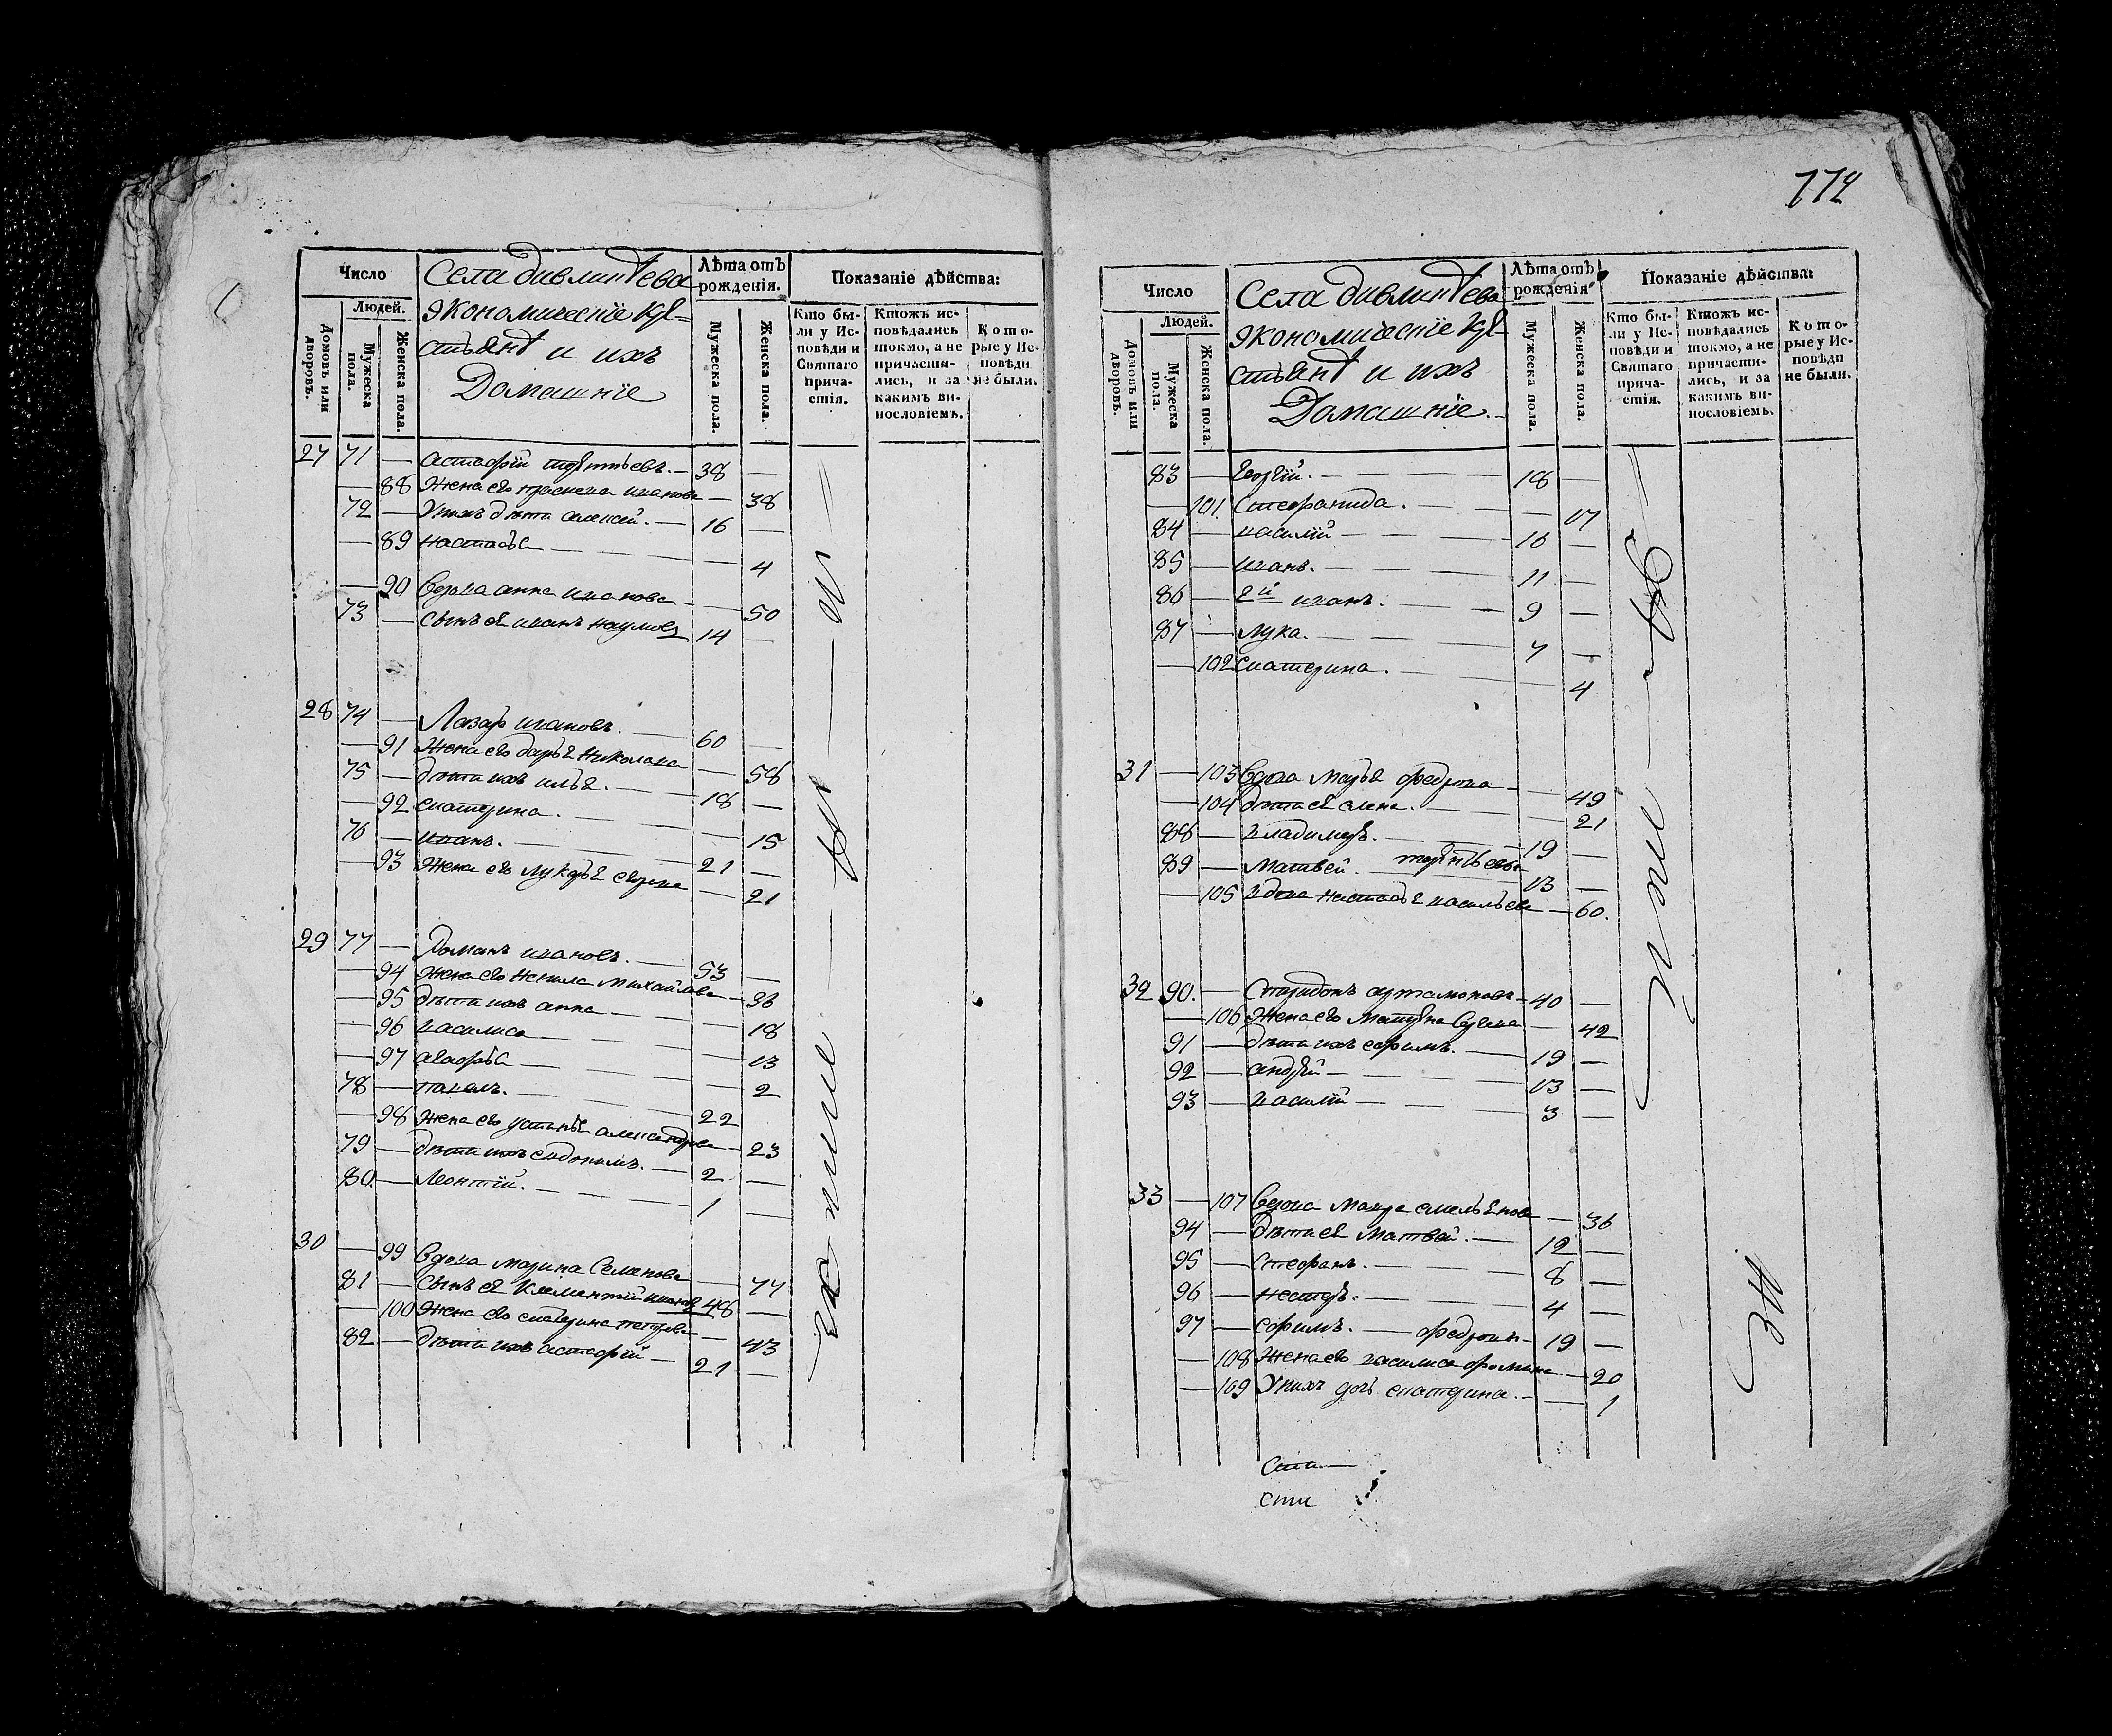 772
Число
Людей.
Домовъ или дворовъ.
Мужеска пола.
Женска пола.
Села
экономическїе кре=
стьянѣ и ихъ
Домашнїе
Лѣта отъ
рожденія.
Мужеска пола.
Женска пола.
Показаніе дѣйства:
Кто бы-
ли у Ис-
повѣди и
Святаго
прича-
стія.
Ктожъ ис-
повѣдались
токмо, а не
причасти-
лись, и за
какимъ ви-
нословіемъ.
Кото-
рые у Ис-
повѣди
не были.
27 71 — Астафїй терентьевъ. — 38 —
— 88 Жена его праскева иванова — 38
72 — У нихъ дѣти алексей. — 16 —
— 89 настасья — — 4
— 90 Вдова анна иванова — — 50
73 — Сынъ ея иванъ наумовъ 14 —
28 74 — Лазарь ивановъ. — 60 —
— 91 Жена его дарья николаева — 58
75 — дѣти ихъ илья. — 18 —
— 92 екатерина. — — 15
76 — иванъ. — 21 —
— 93 Жена его лукерья егорова — 21
29 77 — Романъ ивановъ. — 53 —
— 94 Жена его ненила михайлова — 36
— 95 дѣти ихъ анна — — 18
— 96 василиса — — 13
— 97 агафья — — 2
78 — павелъ. — 22
— 98 Жена его устинья александрова — 23
79 — дѣти ихъ евдокимъ. — 2 —
80. — Леонтїй. — 1 —
30 — 99 Вдова марина Семенова — 77
81 — Сынъ ея Клементїй ивановъ 48 —
— 100 Жена его екатерина петрова — 43
82 — дѣти ихъ астафїй — 21 —
Число
Людей.
Домовъ или дворовъ.
Мужеска пола.
Женска пола.
Села
экономическїе кре-
стьянѣ и ихъ
Домашнїе.
Лѣта отъ
рожденія
Мужеска пола.
Женска пола.
Показаніе дѣйства:
Кто бы-
ли у Ис-
повѣди и
Святаго
прича-
стія.
Ктожъ ис-
повѣдались
токмо, а не
причасти-
лись, и за
какимъ ви-
нословіемъ.
Кото-
рые у Ис-
повѣди
не были.
83 — георгїй. — 18 —
— 101 Стефанида. — — 17
84 — василїй — 16 —
85 — иванъ. — 11 —
86 — 2й иванъ. — 9 —
87 — лука. — 7 —
— 102 екатерина. — — 4
31 — 103 Вдова марья федрова — 49
— 104 дѣти ея елена. — — 21
88 — владимеръ. — 19 —
89 — матвей. терентьевы 13 —
— 105 вдова настасья васильева — 60.
32 90. — Спиридонъ артамоновъ — 40 —
— 106 Жена его матрена — 42
91 — дѣти ихъ ефимъ. — 19 —
92 — андрей — 13 —
93 — василїй — 3 —
33 — 107 Вдова мавра емельянова — 36
94 — дѣти ея матвей. — 12 —
95 — стефанъ. — 8 —
96 — нестеръ. — 4 —
97 — ефимъ. — федровъ — 19 —
— 108 Жена его василиса фомина — 20
— 109 У нихъ дочь екатерина. — — 1